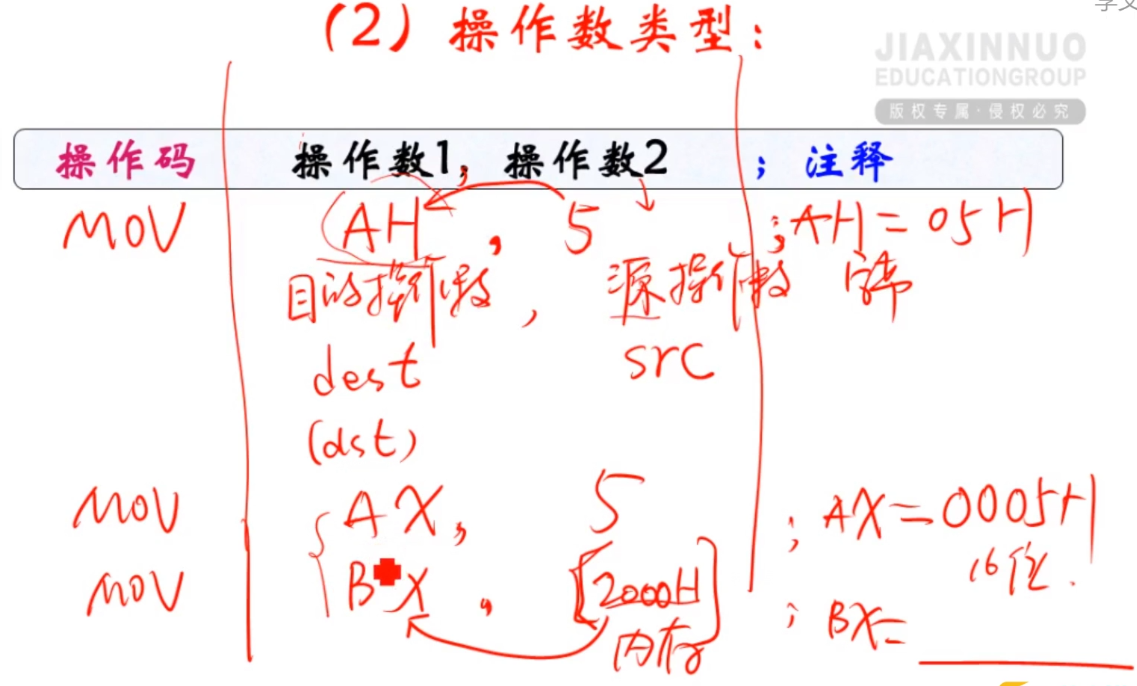 李文
(2) 操作数类型:
JIAXINNUO
EDUCATIONGROUP
版权专属·侵权必究
操作码 操作数1, 操作数2 ; 注释
MOV AH , 5 ;AH=05H
目的操作数 , 源操作数
dest src
(dst)
MOV AX, 5 ; AX=0005H
16位.
MOV BX , [2000H] ; BX=
内存